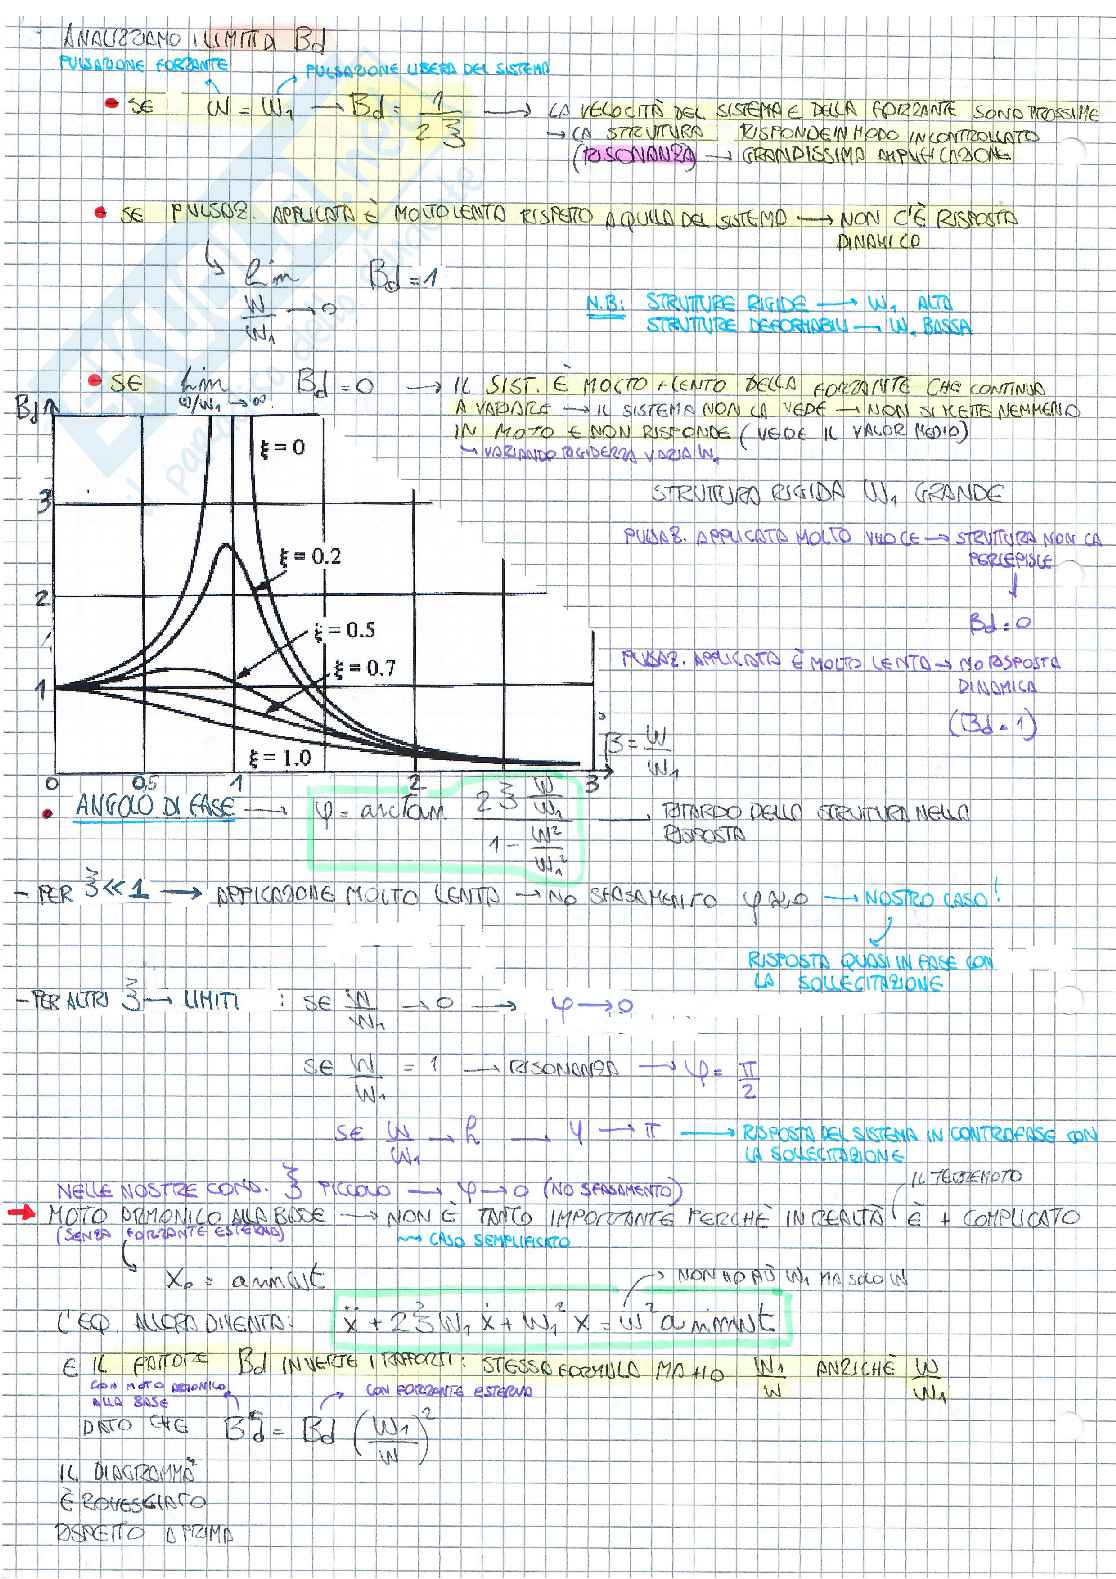 ANALIZZIAMO I LIMITI DI Bd
PULSAZIONE FORZANTE
PULSAZIONE LIBERA DEL SISTEMA
• SE W = W₁ → Bd = 1 / 2ξ → LA VELOCITÀ DEL SISTEMA E DELLA FORZANTE SONO PROSSIME
→ LA STRUTTURA RISPONDE IN MODO INCONTROLLATO
(RISONANZA) → GRANDISSIMA AMPLIFICAZIONE
• SE PULSAZ. APPLICATA È MOLTO LENTA RISPETTO A QUELLA DEL SISTEMA → NON C'È RISPOSTA
DINAMICA
lim W/W₁ → 0 Bd = 1
N.B: STRUTTURE RIGIDE → W₁ ALTA
STRUTTURE DEFORMABILI → W₁ BASSA
• SE lim W/W₁ → ∞ Bd = 0 → IL SIST. È MOLTO + LENTO DELLA FORZANTE CHE CONTINUA
A VARIARE → IL SISTEMA NON LA VEDE → NON SI METTE NEMMENO
IN MOTO E NON RISPONDE (VEDE IL VALOR MEDIO)
↳ VARIANDO RIGIDEZZA VARIA W₁
STRUTTURA RIGIDA W₁ GRANDE
PULSAZ. APPLICATA MOLTO VELOCE → STRUTTURA NON LA
PERCEPISCE
↓
Bd = 0
PULSAZ. APPLICATA È MOLTO LENTA → NO RISPOSTA
DINAMICA
(Bd = 1)
Bd
3
2
1
ξ = 0
ξ = 0.2
ξ = 0.5
ξ = 0.7
ξ = 1.0
0 0,5 1 2 3
β = W/W₁
• ANGOLO DI FASE → φ = arctan (2ξ W/W₁) / (1 - W²/W₁²) → RITARDO DELLA STRUTTURA NELLA
RISPOSTA
- PER ξ << 1 → APPLICAZIONE MOLTO LENTA → NO SFASAMENTO φ ≈ 0 → NOSTRO CASO!
RISPOSTA QUASI IN FASE CON
LA SOLLECITAZIONE
- PER ALTRI ξ → LIMITI : SE W/W₁ → 0 → φ → 0
SE W/W₁ = 1 → RISONANZA → φ = π/2
SE W/W₁ → φ → π → RISPOSTA DEL SISTEMA IN CONTROFASE CON
LA SOLLECITAZIONE
NELLE NOSTRE COND. ξ PICCOLO → φ → 0 (NO SFASAMENTO)
IL TERREMOTO
→ MOTO ARMONICO ALLA BASE → NON È TANTO IMPORTANTE PERCHÈ IN REALTÀ È + COMPLICATO
(SENZA FORZANTE ESTERNA)
→ CASO SEMPLIFICATO
X₀ = a sinwt
→ NON HO PIÙ W₁ MA SOLO W
L'EQ. ALLORA DIVENTA: ẍ + 2ξW₁ẋ + W₁²x = W² a sinwt
E IL FATTORE Bd INVERTE I RAPPORTI: STESSA FORMULA MA HO W₁/W ANZICHÈ W/W₁
CON MOTO ARMONICO
ALLA BASE
CON FORZANTE ESTERNA
DATO CHE Bd = Bd (W₁/W)²
IL DIAGRAMMA
È ROVESCIATO
RISPETTO A PRIMA